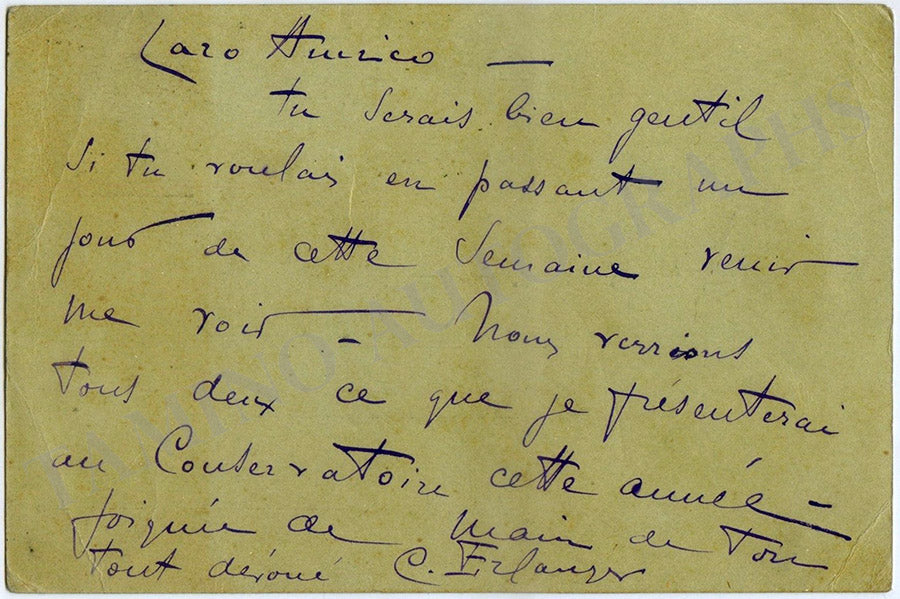 Caro Americo —
tu serais bien gentil
si tu voulais en passant un
jour de cette semaine venir
me voir — Nous verrions
tous deux ce que je présenterai
au Conservatoire cette année —
Poignée de main de ton
tout dévoué C. Erlanger
TAMINO AUTOGRAPHS